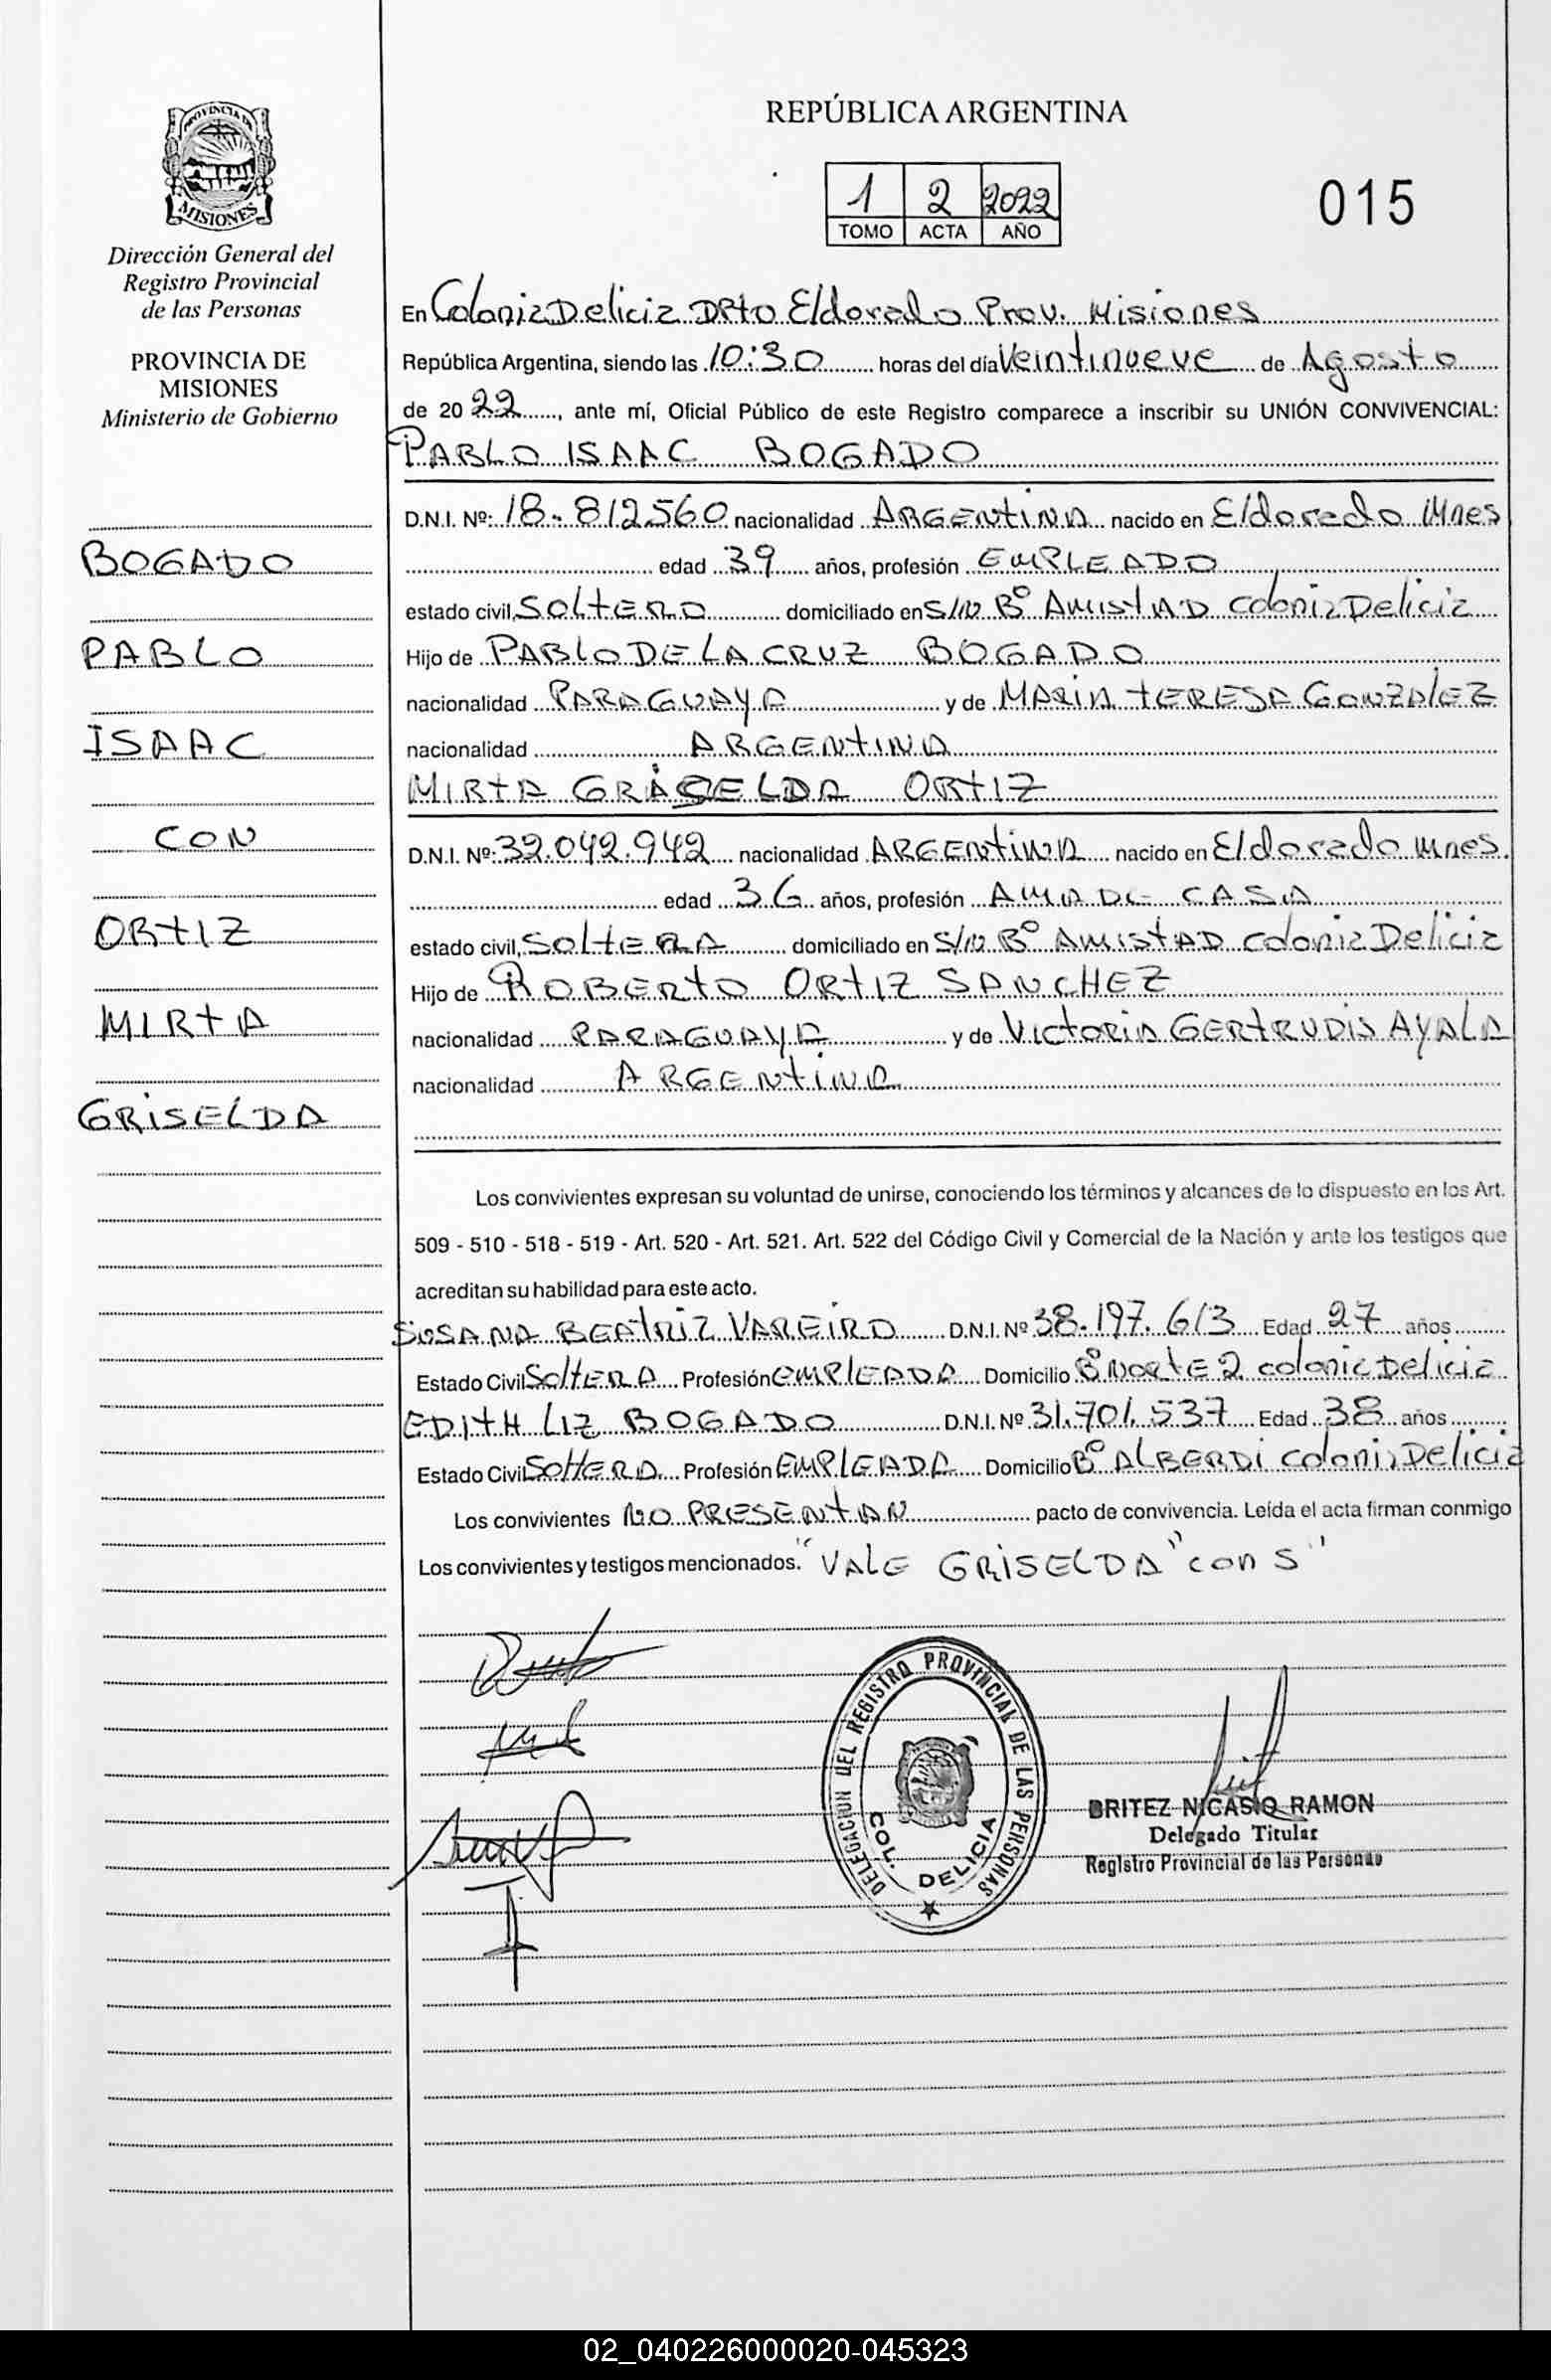 REPÚBLICA ARGENTINA
1 2 2022
TOMO ACTA AÑO
015
PROVINCIA DE
MISIONES
Dirección General del
Registro Provincial
de las Personas
PROVINCIA DE
MISIONES
Ministerio de Gobierno
BOGADO
PABLO
ISAAC
CON
ORTIZ
MIRTA
GRISELDA
En Colonia Delicia Dpto Eldorado Prov. Misiones
República Argentina, siendo las 10:30 horas del día Veintinueve de Agosto
de 2022, ante mí, Oficial Público de este Registro comparece a inscribir su UNIÓN CONVIVENCIAL:
PABLO ISAAC BOGADO
D.N.I. Nº: 18.812560 nacionalidad ARGENTINA nacido en Eldorado Mnes
edad 39 años, profesión EMPLEADO
estado civil, SOLTERO domiciliado en S/N Bº AMISTAD Colonia Delicia
Hijo de PABLO DE LA CRUZ BOGADO
nacionalidad PARAGUAYA y de MARIA TERESA GONZALEZ
nacionalidad ARGENTINA
MIRTA ORTIZ
D.N.I. Nº: 32.042.942 nacionalidad ARGENTINA nacido en Eldorado Mnes.
edad 36 años, profesión AMA DE CASA
estado civil, SOLTERA domiciliado en S/N Bº AMISTAD Colonia Delicia
Hijo de ROBERTO ORTIZ SANCHEZ
nacionalidad PARAGUAYA y de VICTORIA GERTRUDIS AYALA
nacionalidad ARGENTINA
Los convivientes expresan su voluntad de unirse, conociendo los términos y alcances de lo dispuesto en los Art.
509 - 510 - 518 - 519 - Art. 520 - Art. 521. Art. 522 del Código Civil y Comercial de la Nación y ante los testigos que
acreditan su habilidad para este acto.
SUSANA BEATRIZ VAREIRO D.N.I. Nº 38.197.613 Edad 27 años
Estado Civil SOLTERA Profesión EMPLEADA Domicilio Bº NORTE 2 Colonia Delicia
EDITH LIZ BOGADO D.N.I. Nº 31.701.537 Edad 38 años
Estado Civil SOLTERA Profesión EMPLEADA Domicilio Bº ALBERDI Colonia Delicia
Los convivientes NO PRESENTAN pacto de convivencia. Leída el acta firman conmigo
Los convivientes y testigos mencionados. "VALE GRISELDA "con S"
DELEGACION DEL REGISTRO PROVINCIAL DE LAS PERSONAS
COL. DELICIA
BRITEZ NICASIO RAMON
Delegado Titular
Registro Provincial de las Personas
02_040226000020-045323